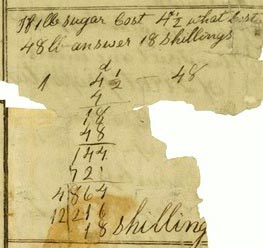 If 1 lb sugar Cost 4½ what Cost
48 lb answer 18 shillings
d
1 4½ 48
4
18
48
144
72
4 | 864
12 | 216
18 shilling